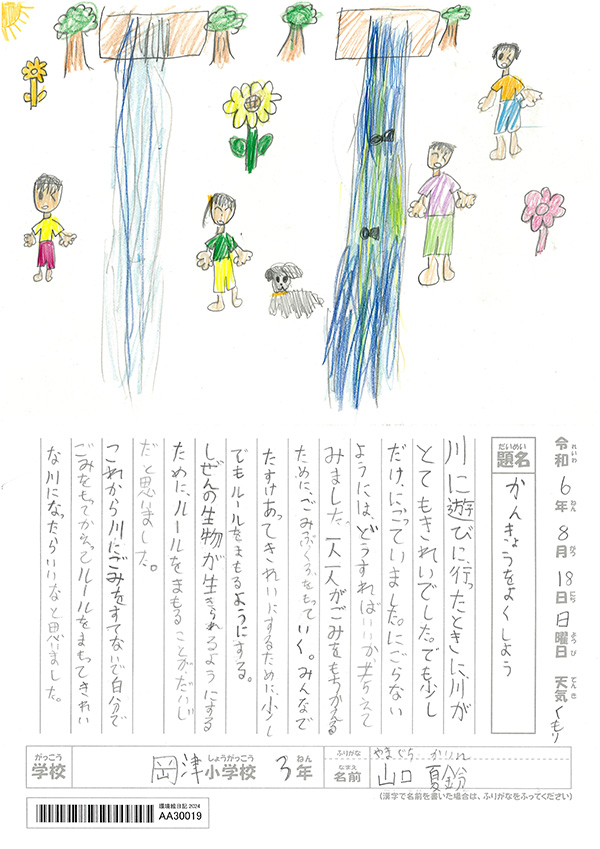 令和6年8月18日日曜日 天気くもり
れいわ ねん がつ にち ようび てんき
だいめい
題名
かんきょうをよくしよう
川に遊びに行ったときに、川が
とてもきれいでした。でも少し
だけ、にごっていました。にごらない
ようには、どうすればいいか考えて
みました。一人一人がごみをもちかえる
ために、ごみぶくろをもっていく。みんなで
たすけあってきれいにするために、少し
でもルールをまもるようにする。
しぜんの生物が生きられるようにする
ために、ルールをまもることがだいじ
だと思いました。
これから川にごみをすてないで自分で
ごみをもってかえってルールをまもってきれい
な川になったらいいなと思いました。
がっこう
学校
岡津小学校 3年
しょうがっこう ねん
ふりがな
やまぐち かりん
なまえ
名前
山口 夏鈴
(漢字で名前を書いた場合は、ふりがなをふってください)
環境絵日記2024
AA30019